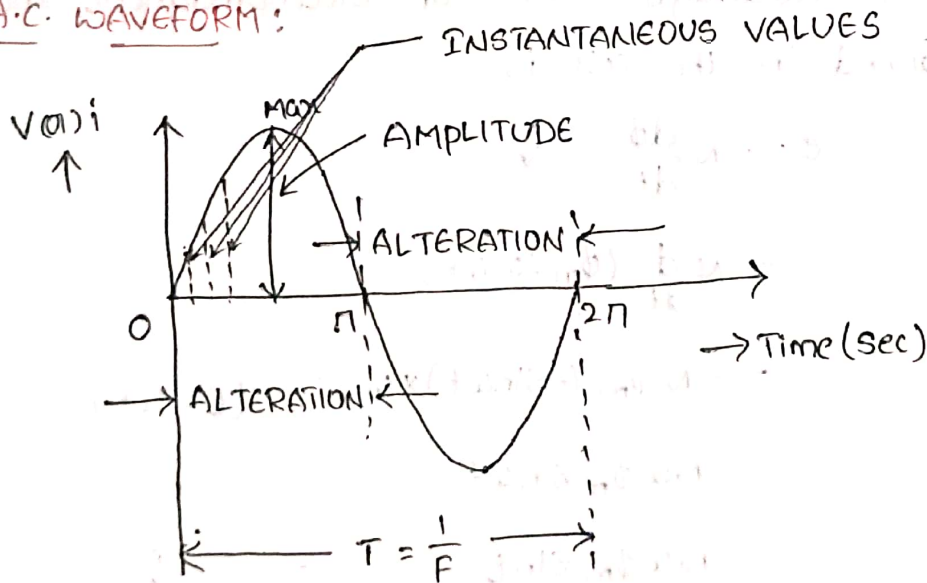 A.C. WAVEFORM:
INSTANTANEOUS VALUES
V(or)i
Max
AMPLITUDE
↑
→ALTERATION←
O
π
2π
→Time(sec)
→ALTERATION←
T = 1/F